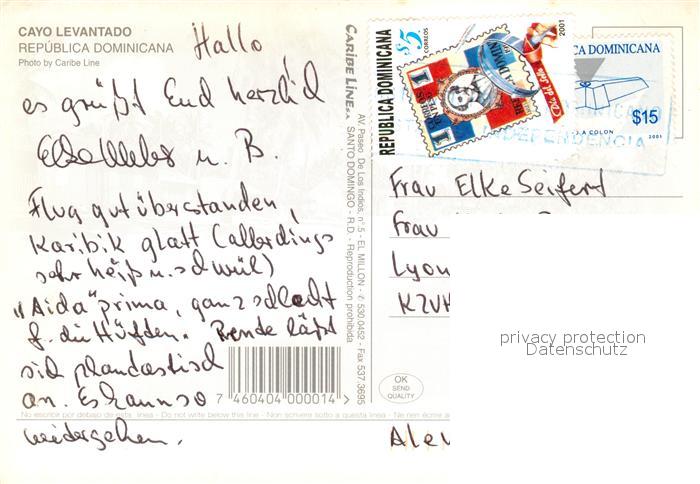 CAYO LEVANTADO
REPÚBLICA DOMINICANA
Photo by Caribe Line
Hallo,
es grüßt Euch herzlich
u. B.
Flug gut überstanden,
Karibik glatt (allerdings
sehr heiß u. schwül)
"Aida" prima, ganz schlecht
f. die Hüften. Rente läßt
sich phantastisch
an. Es kann so
weitergehen.
CARIBE LINE
AV. Paseo De Los Indios, nº 5 - EL MILLON - ✆ 530.0452 - Fax 537.3695
SANTO DOMINGO - R.D. - Reproduction prohibida
7 460404 000014 >
No escribir por debajo de esta linea - Do not write below this line - Non scrivere sotto a questa linea - Ne rien écrire a
REPUBLICA DOMINICANA
$5
CORREOS
2001
Día del Sello
CA DOMINICANA
$15
COLON
2001
INDEPENDENCIA
Frau Elke Seifert
Frau
Lyon
OK
SEND
QUALITY
Alex
privacy protection
Datenschutz